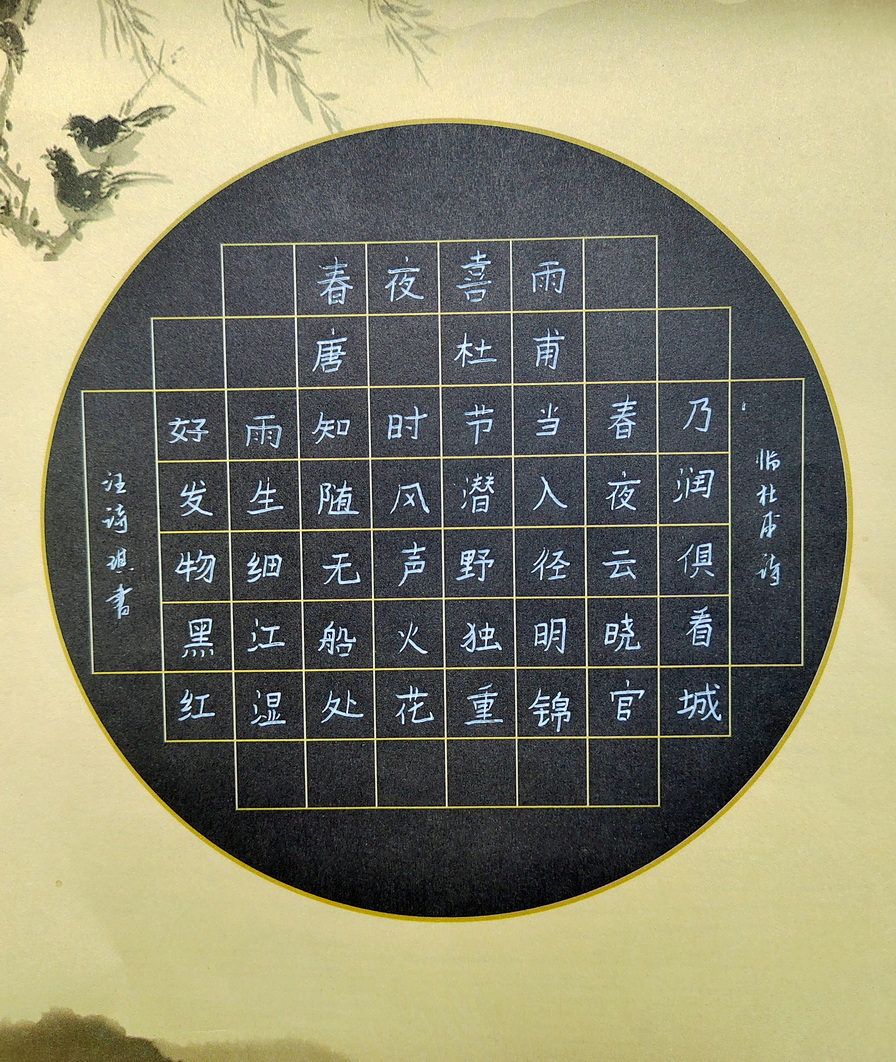 春夜喜雨
唐 杜甫
好雨知时节当春乃
发生随风潜入夜润
物细无声野径云俱
黑江船火独明晓看
红湿处花重锦官城
临杜甫诗
汪诗琪书